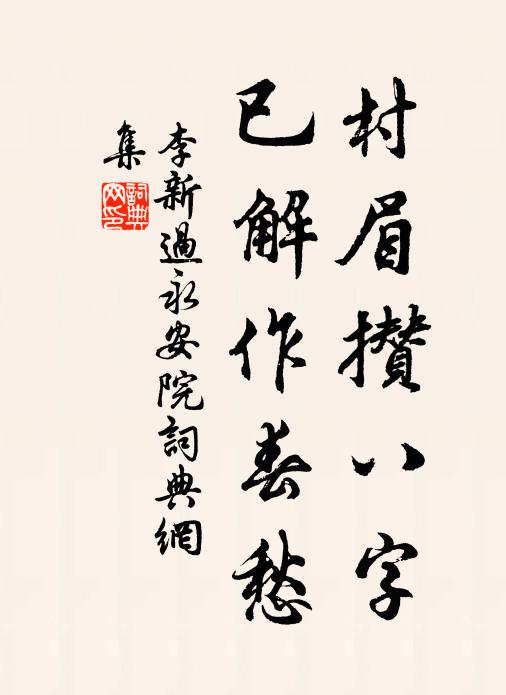 村眉攅八字
已解作春愁
李新過永安院詞典網
集
詞典
网印